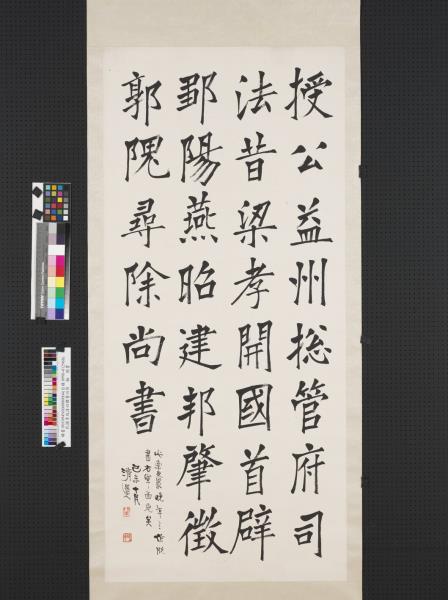 授公益州捴管府司
法昔梁孝開國首辟
鄒陽燕昭建邦肇徵
郭隗尋除尚書
己未十月